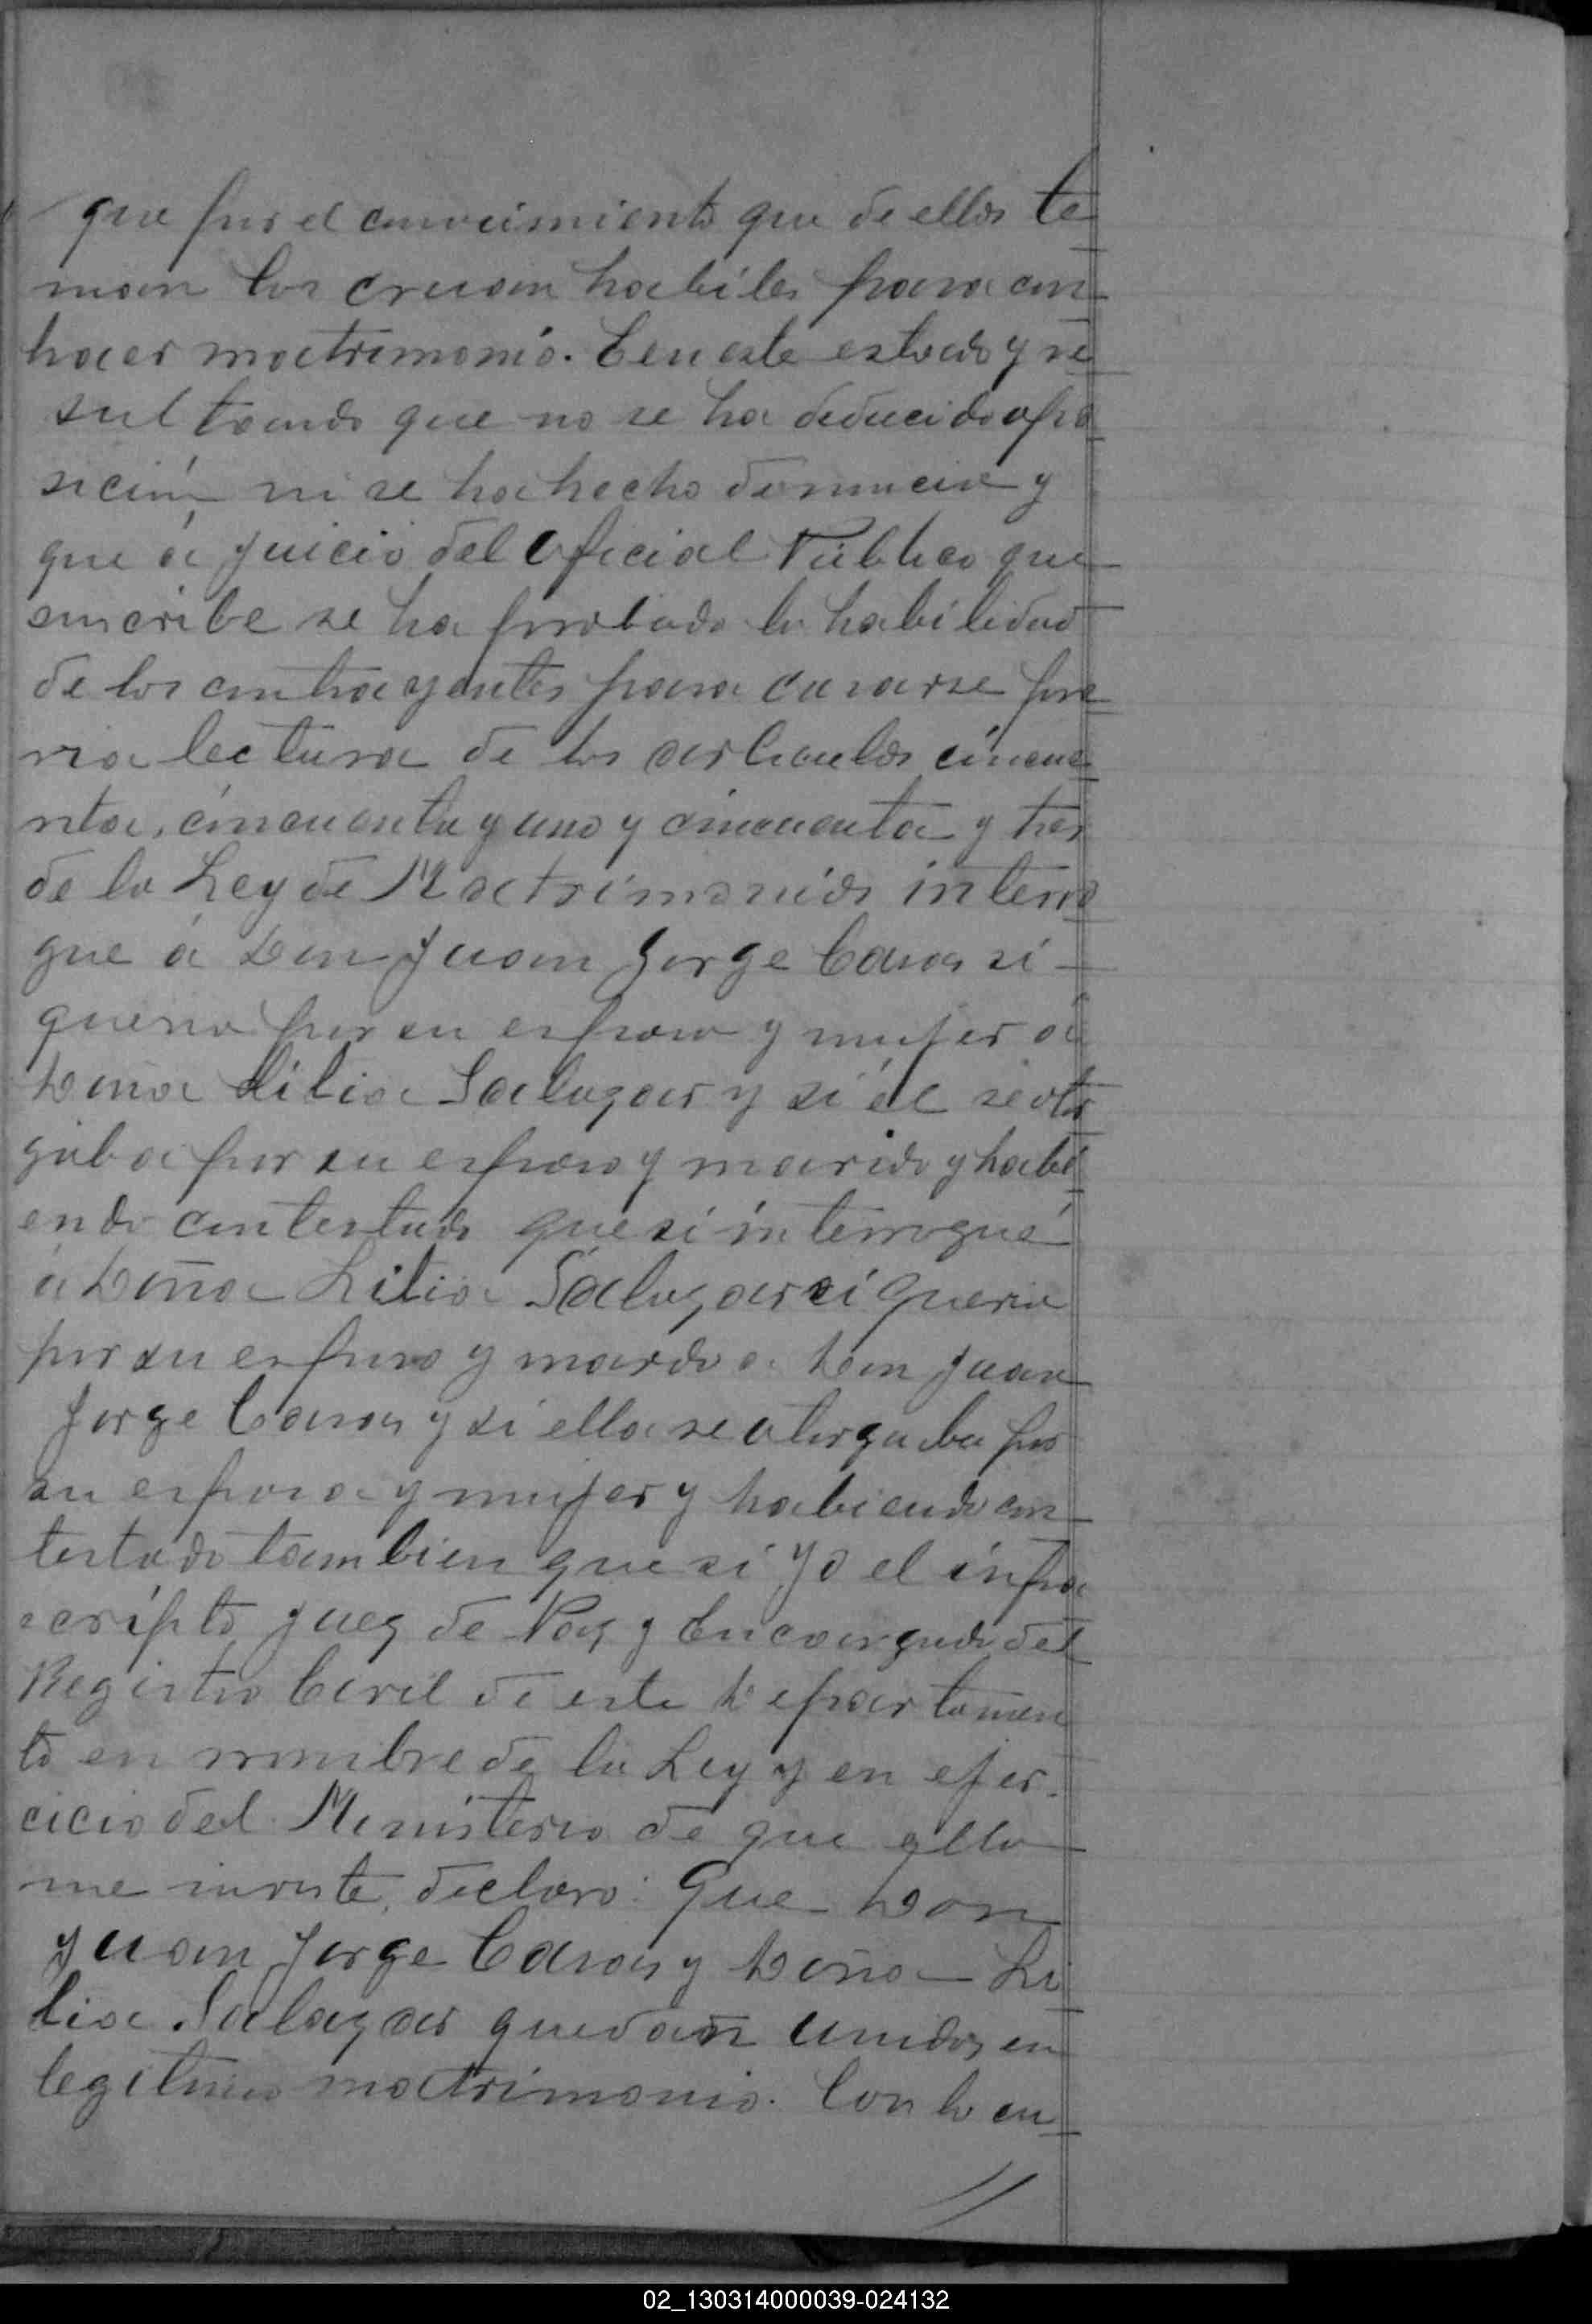 que por el conocimiento que de ellos te
nian los creian habiles para con
traer matrimonio. En este estado y re
sultando que no se ha deducido opo
sición ni se ha hecho denuncia y
que á juicio del Oficial Público que
suscribe se ha probado la habilidad
de los contrayentes para casarse pre
via lectura de los articulos cincue
nta, cincuenta y uno y cincuenta y tres
de la Ley de Matrimonio interro
gue á Don Juan Jorge Casas si
queria por su esposa y mujer á
Doña Lilia Salazar y si él se otor
gaba por su esposo y marido y habi
endo contestado que si interrogué
á Doña Lilia Salazar si queria
por su esposo y mardo a Don Juan
Jorge Casas y si ella se otorgaba por
su esposa y mujer y habiendo con
testado tambien que si Yo el infra
scripto Juez de Paz y Encargado del
Registro Civil de este Departamen
to en nombre de la Ley y en ejer-
cicio del Ministerio de que ella
me inviste, declaro: Que Don
Juan Jorge Casas y Doña Li
lia Salazar quedan unidos en
legitimo matrimonio. Con lo cu
02_130314000039-024132